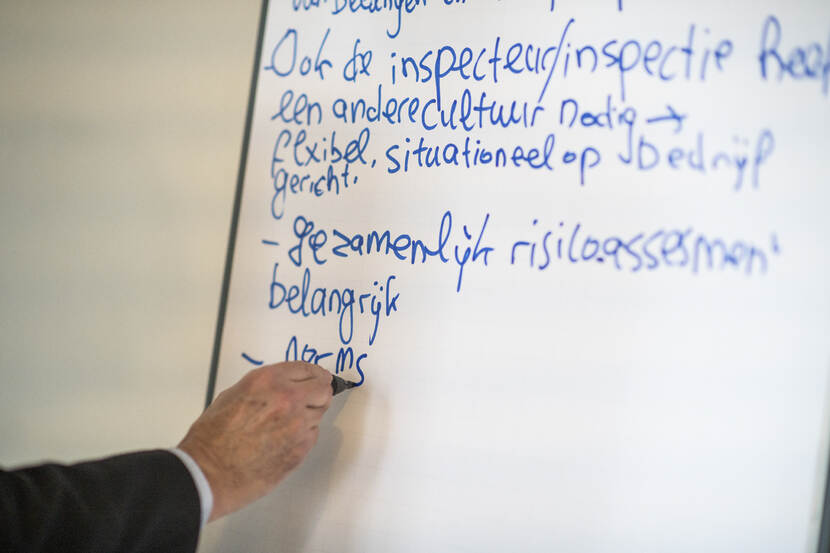 van
- Ook de inspecteur/inspectie heef
een andere cultuur nodig →
flexibel, situationeel op bedrijf
gericht.
- gezamenlijk risiloassesment
belangrijk
- norms